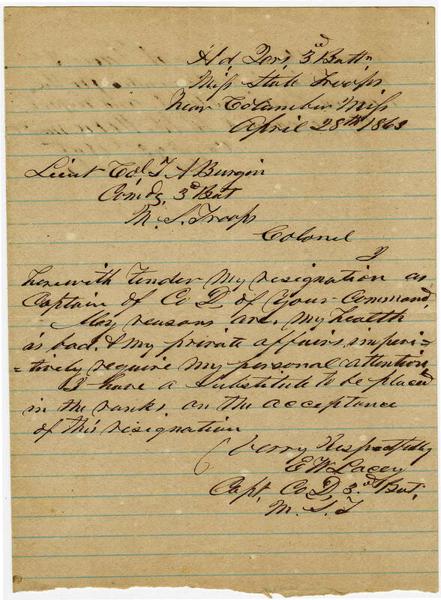 Hd Qrs, 3rd Battn
Miss State Troops
Near Columbus Miss
April 28th 1863
Lieut Col, T A Burgin
Comdg, 3rd Bat
M. S. Troops
Colonel
I
herewith tender my resignation as
Captain of Co D of Your Command,
My reasons are, my health
is bad. & my private affairs, imperi-
-tively require my personal attention
I have a substitute to be placed
in the ranks, on the acceptance
of this resignation
Verry Respectfully
E W Lacey
Capt. Co D, 3rd Bat,
M. S. T